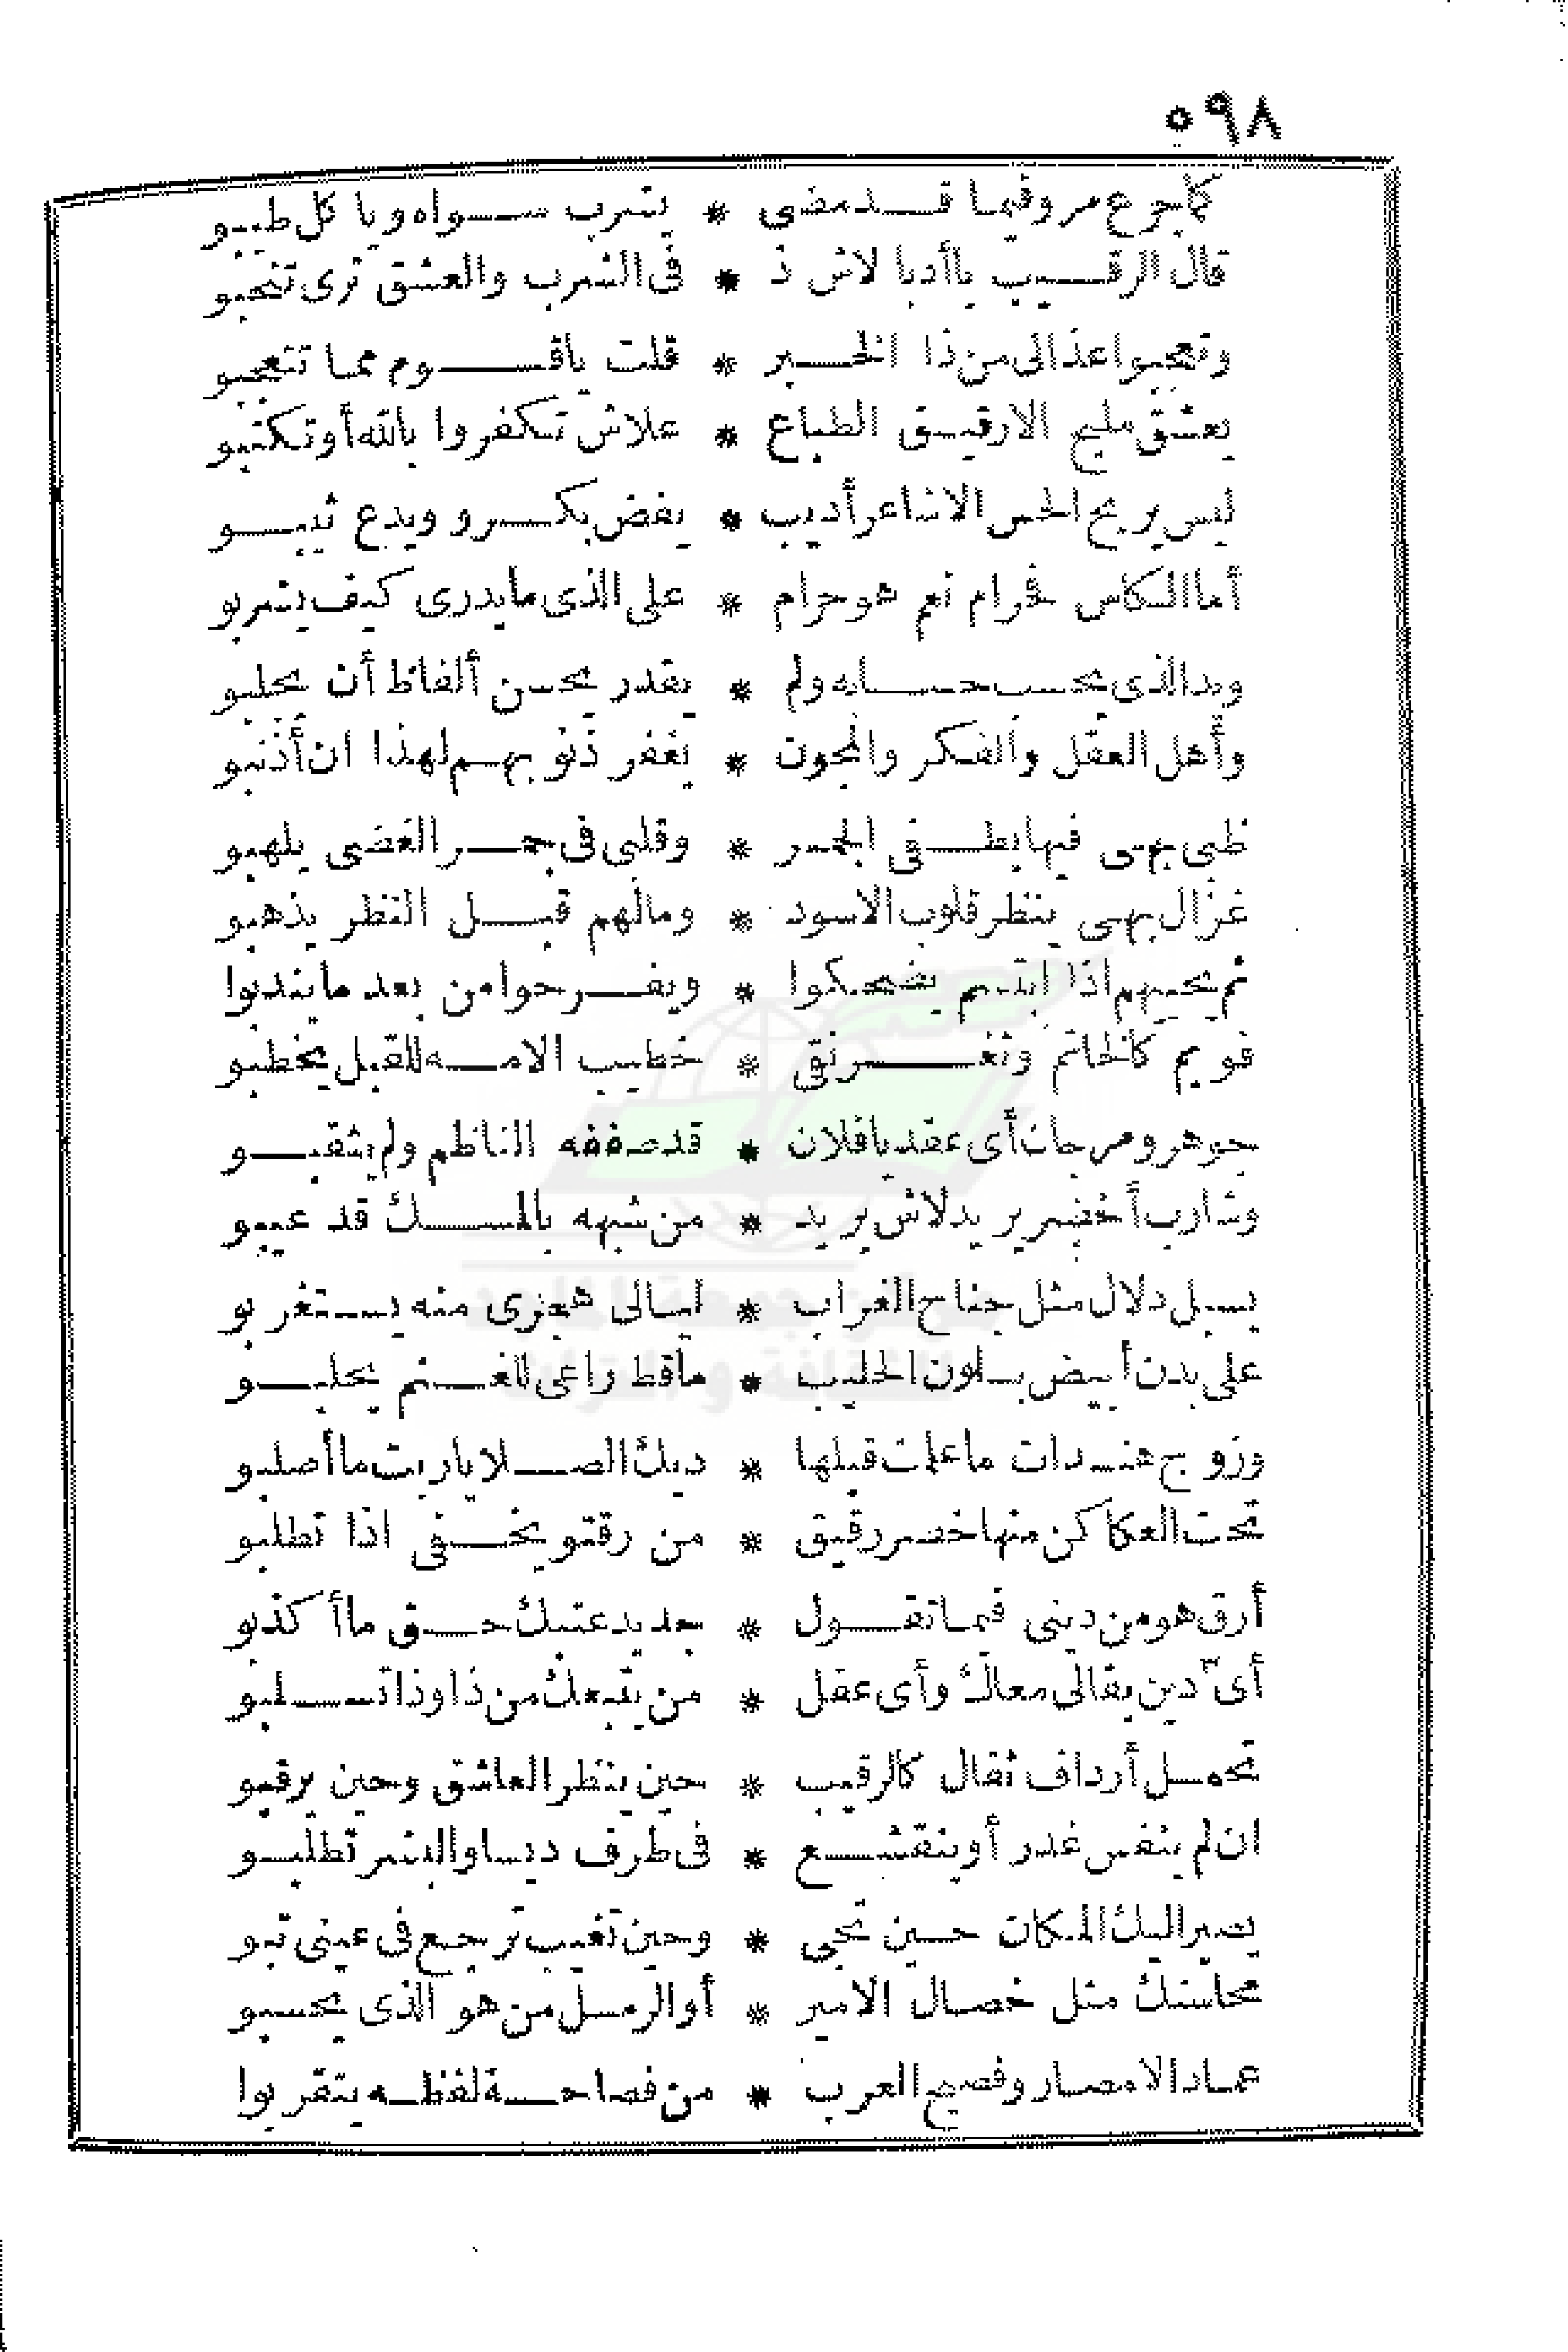 ٥٩٨
كما جرع مر وفيما قد مضى * يشرب سواه ويا كل طيبو
قال الرقيب يا أدبا لاش ذ * فى الشرب والعشق ترى تنجبو
وتعجبوا عذالى من ذا الخبر * قلت يا قوم مما تتعجبو
يعشق مليح الا رقيق الطباع * علاش تكفروا بالله أو تكتبو
ليس يربح الحس الا شاعر أديب * يفض بكرو ويدع ثيبو
أما الكاس فحرام نعم هو حرام * على الذى ما يدرى كيف يشربو
ويد الذى يحسب حسابه ولم * يقدر يحسن ألفاظ أن يجلبو
وأهل العقل والفكر والمجون * يغفر ذنوبهم لهذا ان أذنبو
ظبى بهى فيها يطفى الجمر * وقلبى فى جمر الغضى يلهبو
غزال بهى ينظر قلوب الاسود * ومالهم قبل النظر يذهبو
ثم يحييهم اذا ابتسم يضحكوا * ويفرحوا من بعد ما يندبوا
فويم كالخاتم وثغر نقى * خطيب الامه للقبل يخطبو
جوهر ومرجان أى عقد يا فلان * قد صففه الناظم ولم يثقبو
وشارب أخضر يريد لاش يريد * من شبهه بالمسك قد عيبو
يسبل دلال مثل جناح الغراب * ليالى هجرى منه يستغربو
على بدن أبيض بلون الحليب * ما قط راعى للغنم يحلبو
وزوج هندات ما علمت قبلها * ديك الصلا ياريت ما أصلبو
تحت العكاكن منها خصر رقيق * من رقتو يخفى اذا تطلبو
أرق هو من دينى فيما تقول * جديد عتبك حق ما أكذبو
أى دين بقالى معاك وأى عقل * من يتبعك من ذا وذا تسلبو
تحمل أرداف ثقال كالرقيب * حين ينظر العاشق وحين يرقبو
ان لم ينفس غدر أو ينقشع * فى طرف ديسا والبشر تطلبو
يصير اليك المكان حين تجى * وحين تغيب ترجع فى عينى تبو
محاسنك مثل خصال الامير * أو الرمل من هو الذى يحسبو
عماد الامصار وفصيح العرب * من فصاحة لفظه يتقربوا